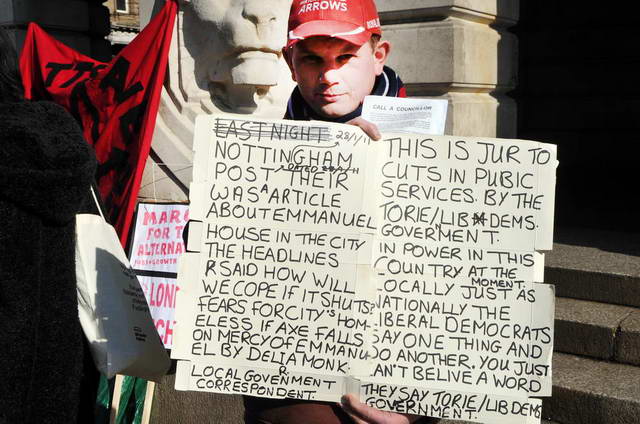 ARROWS
CALL A COUNCILLOR
TRA
MARC
FOR T
ALTERNA
JOBS GROWTH
LON
EASTNIGHT 28/1/11
NOTTINGHAM
POST DATED 28/1/11 THEIR
WAS A ARTICLE
ABOUT EMMANUEL
HOUSE IN THE CITY
THE HEADLINES
R SAID HOW WILL
WE COPE IF IT SHUTS?
FEARS FOR CITY'S HOM-
ELESS IF AXE FALLS
ON MERCY OF EMMANU
EL BY DELIA MONK.
R.
LOCAL GOVENMENT
CORRESPONDENT.
THIS IS JUR TO
CUTS IN PUBIC
SERVICES. BY THE
TORIE/LIB DEMS.
GOVERMENT.
IN POWER IN THIS
COUNTRY AT THE MOMENT.
LOCALLY JUST AS
NATIONALLY THE
LIBERAL DEMOCRATS
SAY ONE THING AND
DO ANOTHER. YOU JUST
CAN'T BELIVE A WORD
THEY SAY TORIE/LIB DEMS
GOVERNMENT.